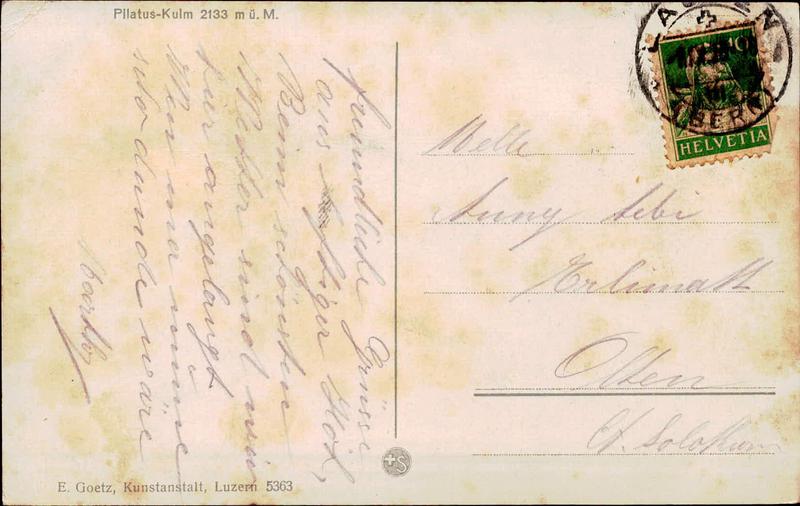 Pilatus-Kulm 2133 m ü. M.
freundliche Grüsse
aus luftiger Höh,
Beim schönsten
Wetter sind wir
hier angelangt
Wen ma nume
scho dunde wäre
LAUPEN
(BERN)
10
HELVETIA
Melle
Anny Aebi
Erlimatt
Olten
Kt. Solothurn
+S
E. Goetz, Kunstanstalt, Luzern 5363